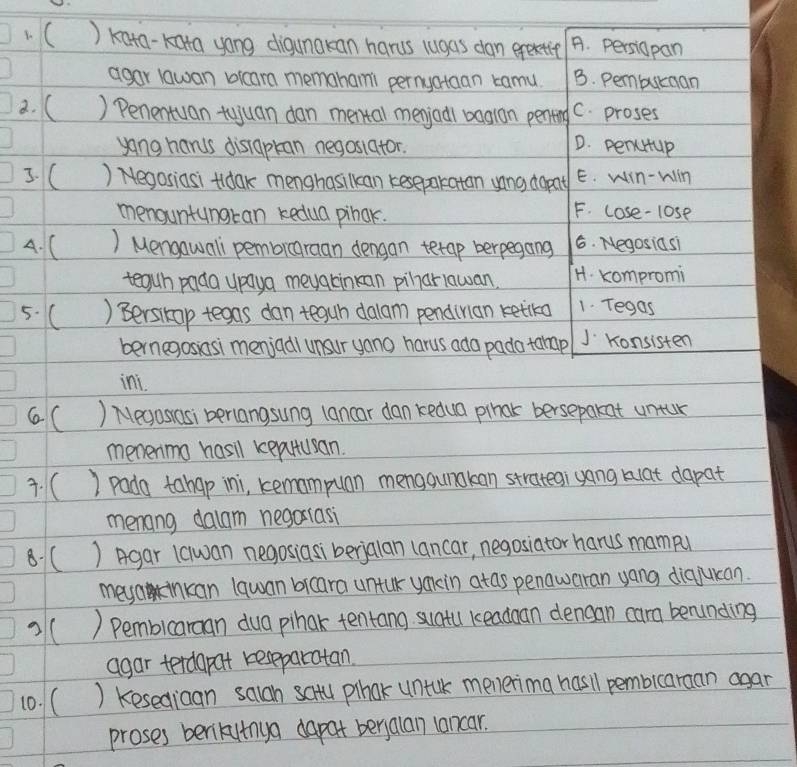 1. ( ) Kata-kata yang digunakan harus lugas dan efektif
agar lawan bicara memahami pernyataan kamu.
2. ( ) Penentuan tujuan dan mental menjadi bagian penting
yang harus disiapkan negosiator.
3. ( ) Negosiasi tidak menghasilkan kesepakatan yang dapat
menguntungkan kedua pihak.
4. ( ) Mengawali pembicaraan dengan tetap berpegang
teguh pada upaya meyakinkan pihak lawan.
5. ( ) Bersikap tegas dan teguh dalam pendirian ketika
bernegosiasi menjadi unsur yang harus ada pada tahap
ini.
A. Persiapan
B. Pembukaan
C. proses
D. Penutup
E. Win-Win
F. Lose-lose
G. Negosiasi
H. kompromi
I. Tegas
J. Konsisten
6. ( ) Negosiasi berlangsung lancar dan kedua pihak bersepakat untuk
menerima hasil keputusan.
7. ( ) Pada tahap ini, kemampuan menggunakan strategi yang kuat dapat
menang dalam negosiasi
8. ( ) Agar lawan negosiasi berjalan lancar, negosiator harus mampu
meyakinkan lawan bicara untuk yakin atas penawaran yang diajukan.
9 ( ) Pembicaraan dua pihak tentang suatu keadaan dengan cara berunding
agar terdapat kesepakatan.
10. ( ) Kesediaan salah satu pihak untuk menerima hasil pembicaraan agar
proses berikutnya dapat berjalan lancar.